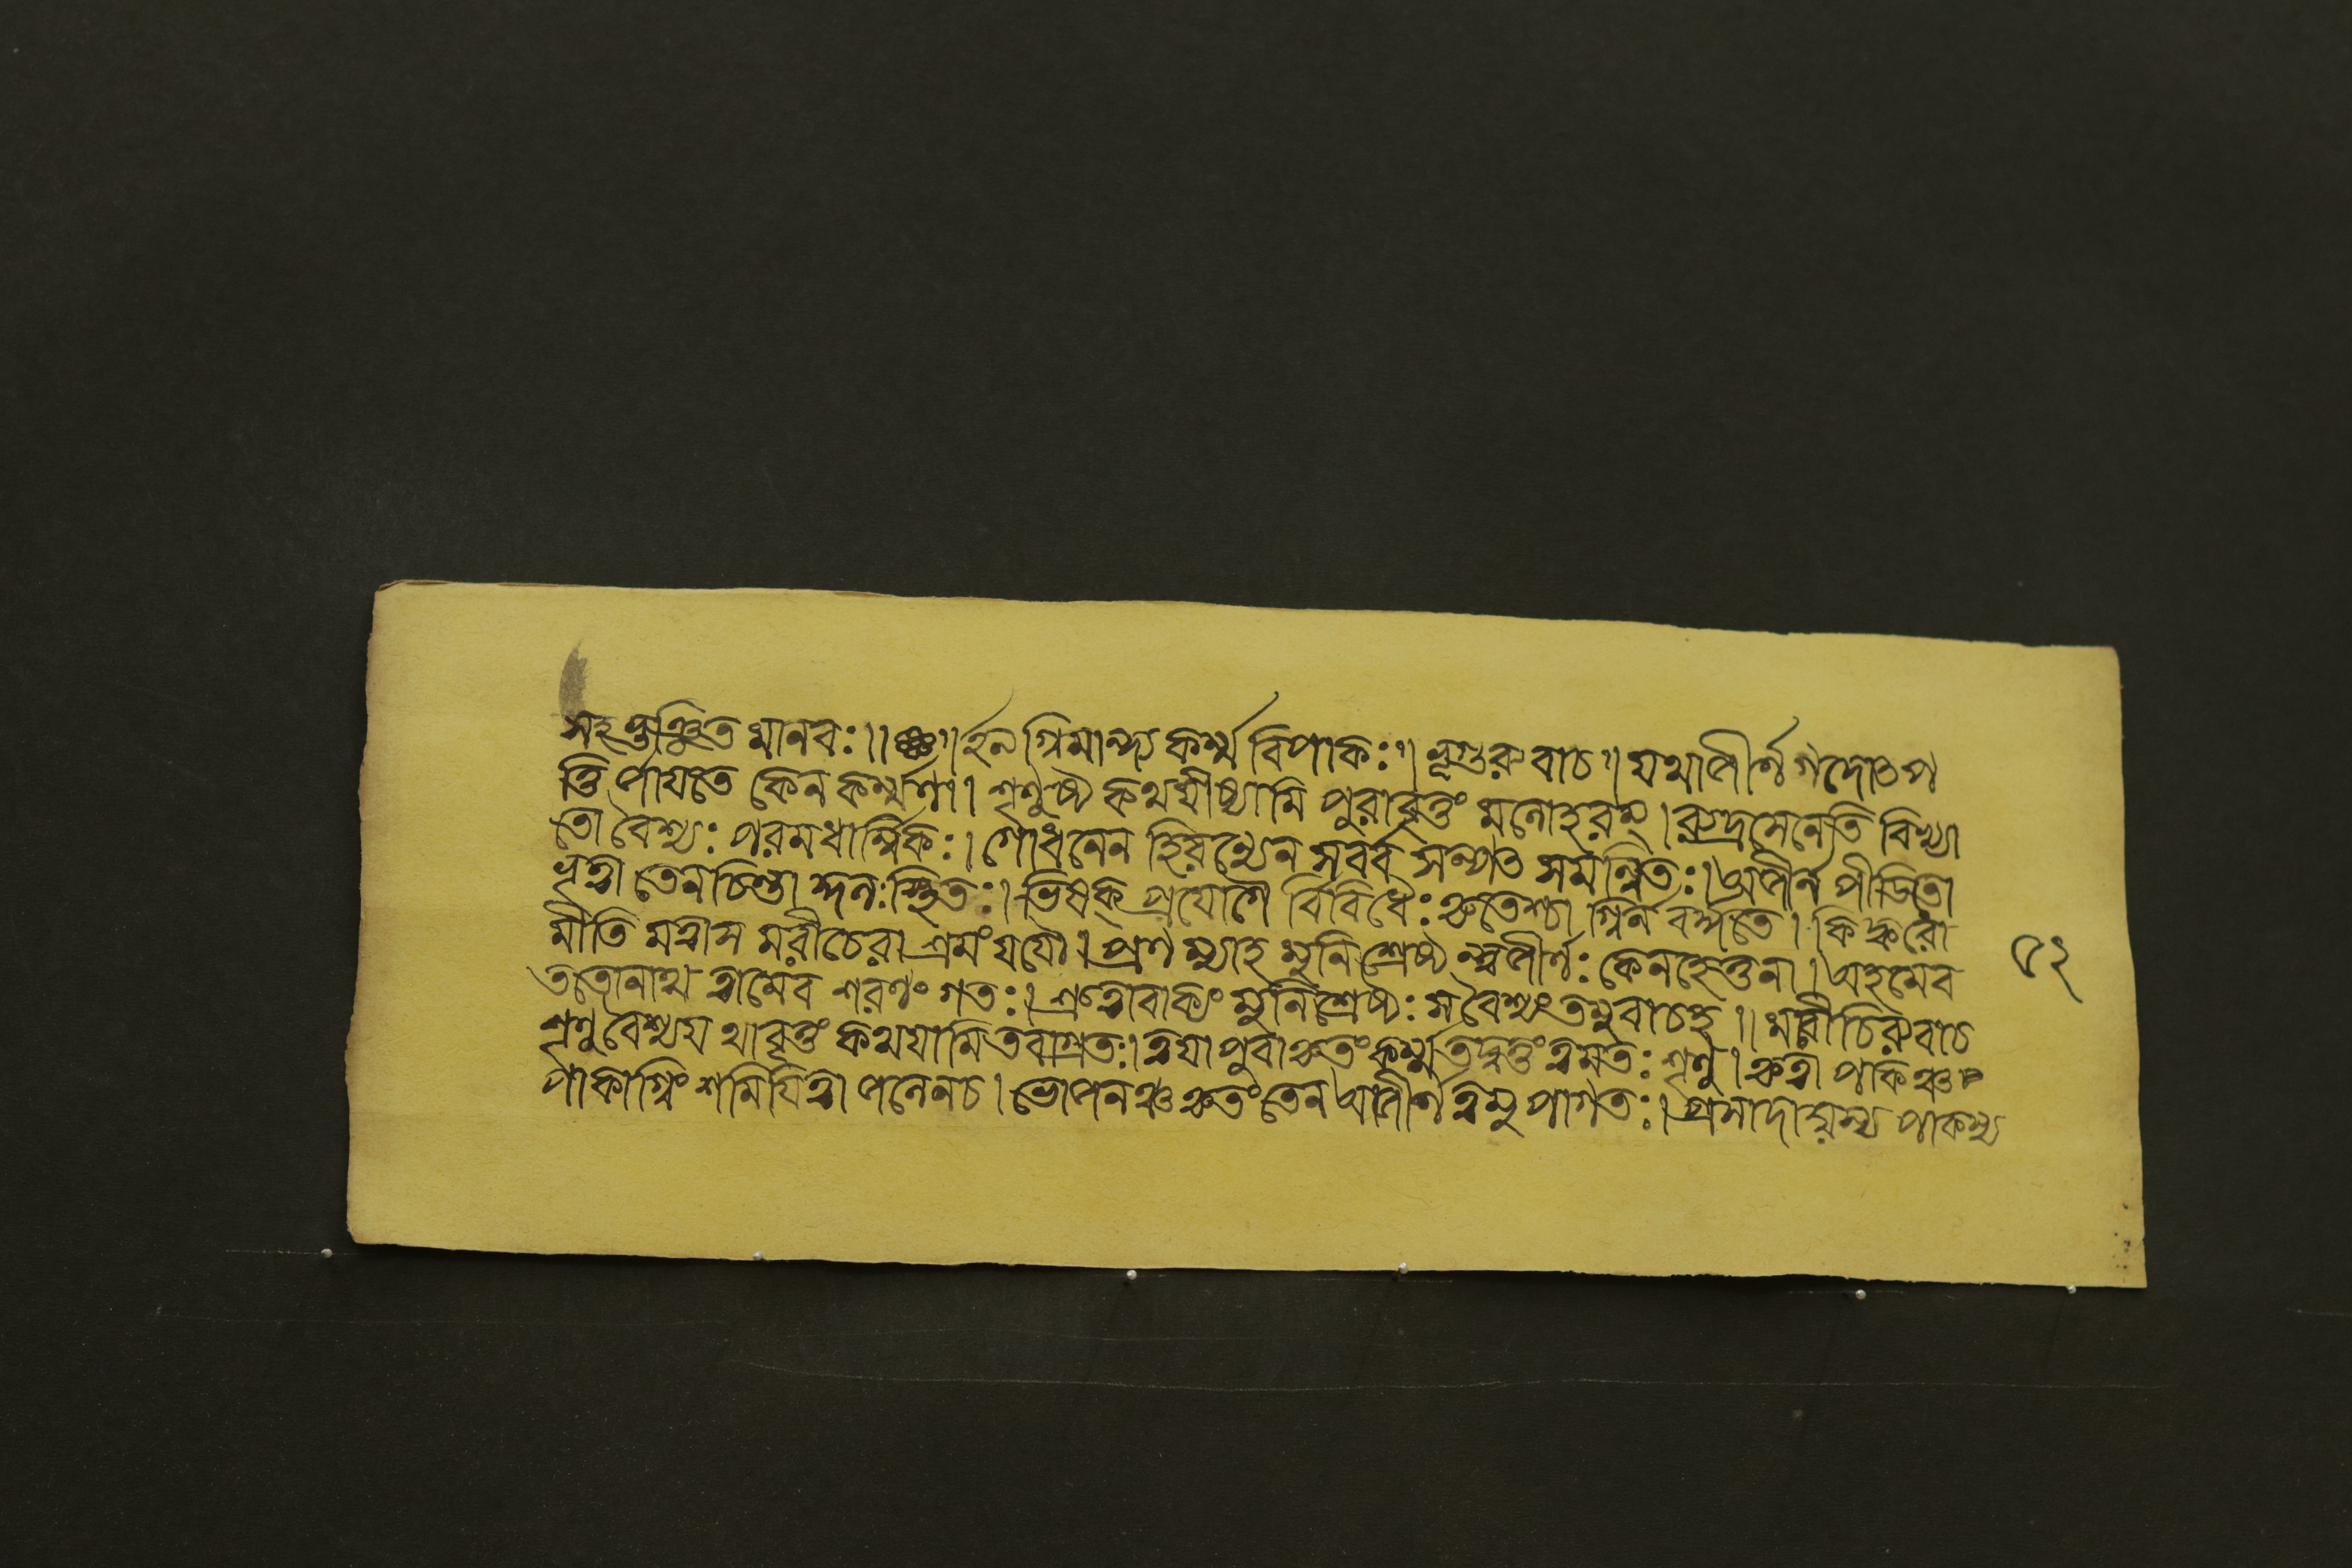 সহ ভুঞ্জিত মানবঃ।। ইত্যগ্নিমান্দ্য কর্ম্ম বিপাকঃ।। ভৃগুরুবাচ।। যথাজীর্ণ গদোৎপ
ত্তি র্জায়তে কেন কর্ম্মণা। শৃণুষ্ব কথয়ীষ্যামি পুরাবৃত্তং মনোহরম্। রুদ্রসেনেতি বিখ্যা
তো বৈশ্যঃ পরমধার্ম্মিকঃ। গোধনেন হিরণ্যেন সর্ব্ব সম্পৎ সমন্বিতঃ। অজীর্ন পীডিতো
ভূত্বা তেন চিন্তা মনঃ স্থিতঃ। ভিষক্ প্রযোগৈ র্বিবিধৈঃ কৃতেশ্চা গ্নির্ন বর্দ্ধতে। কিঙ্করো
মীতি মত্বাস মরীচেরা শ্রমং যযৌ। প্রণম্যাহ মুনিশ্রেষ্ঠ ন্ত্বজীর্ণঃ কেন হেতুনা। অহমেব
ততোনাথ ত্বামেব শরণং গতঃ। শ্রুত্বা বাক্যং মুনিশ্রেষ্ঠঃ স বৈশ্যং তমুবাচহ।। মরীচিরুবাচ
শৃণু বৈশ্য যথাবৃত্তং কথযামি তবাগ্রতঃ। ত্বযা পুরা কৃতং কর্ম্ম তদ্বৃত্তং ত্বমতঃ শৃণু। কৃত্বা পাকঞ্চ
পাকাগ্নিং শমিযিত্বা জলেন চ। ভোজনঞ্চ কৃতং তেন অজীর্ণ ত্বমুপাগতঃ। প্রমাদাদ্যস্য পাকস্য